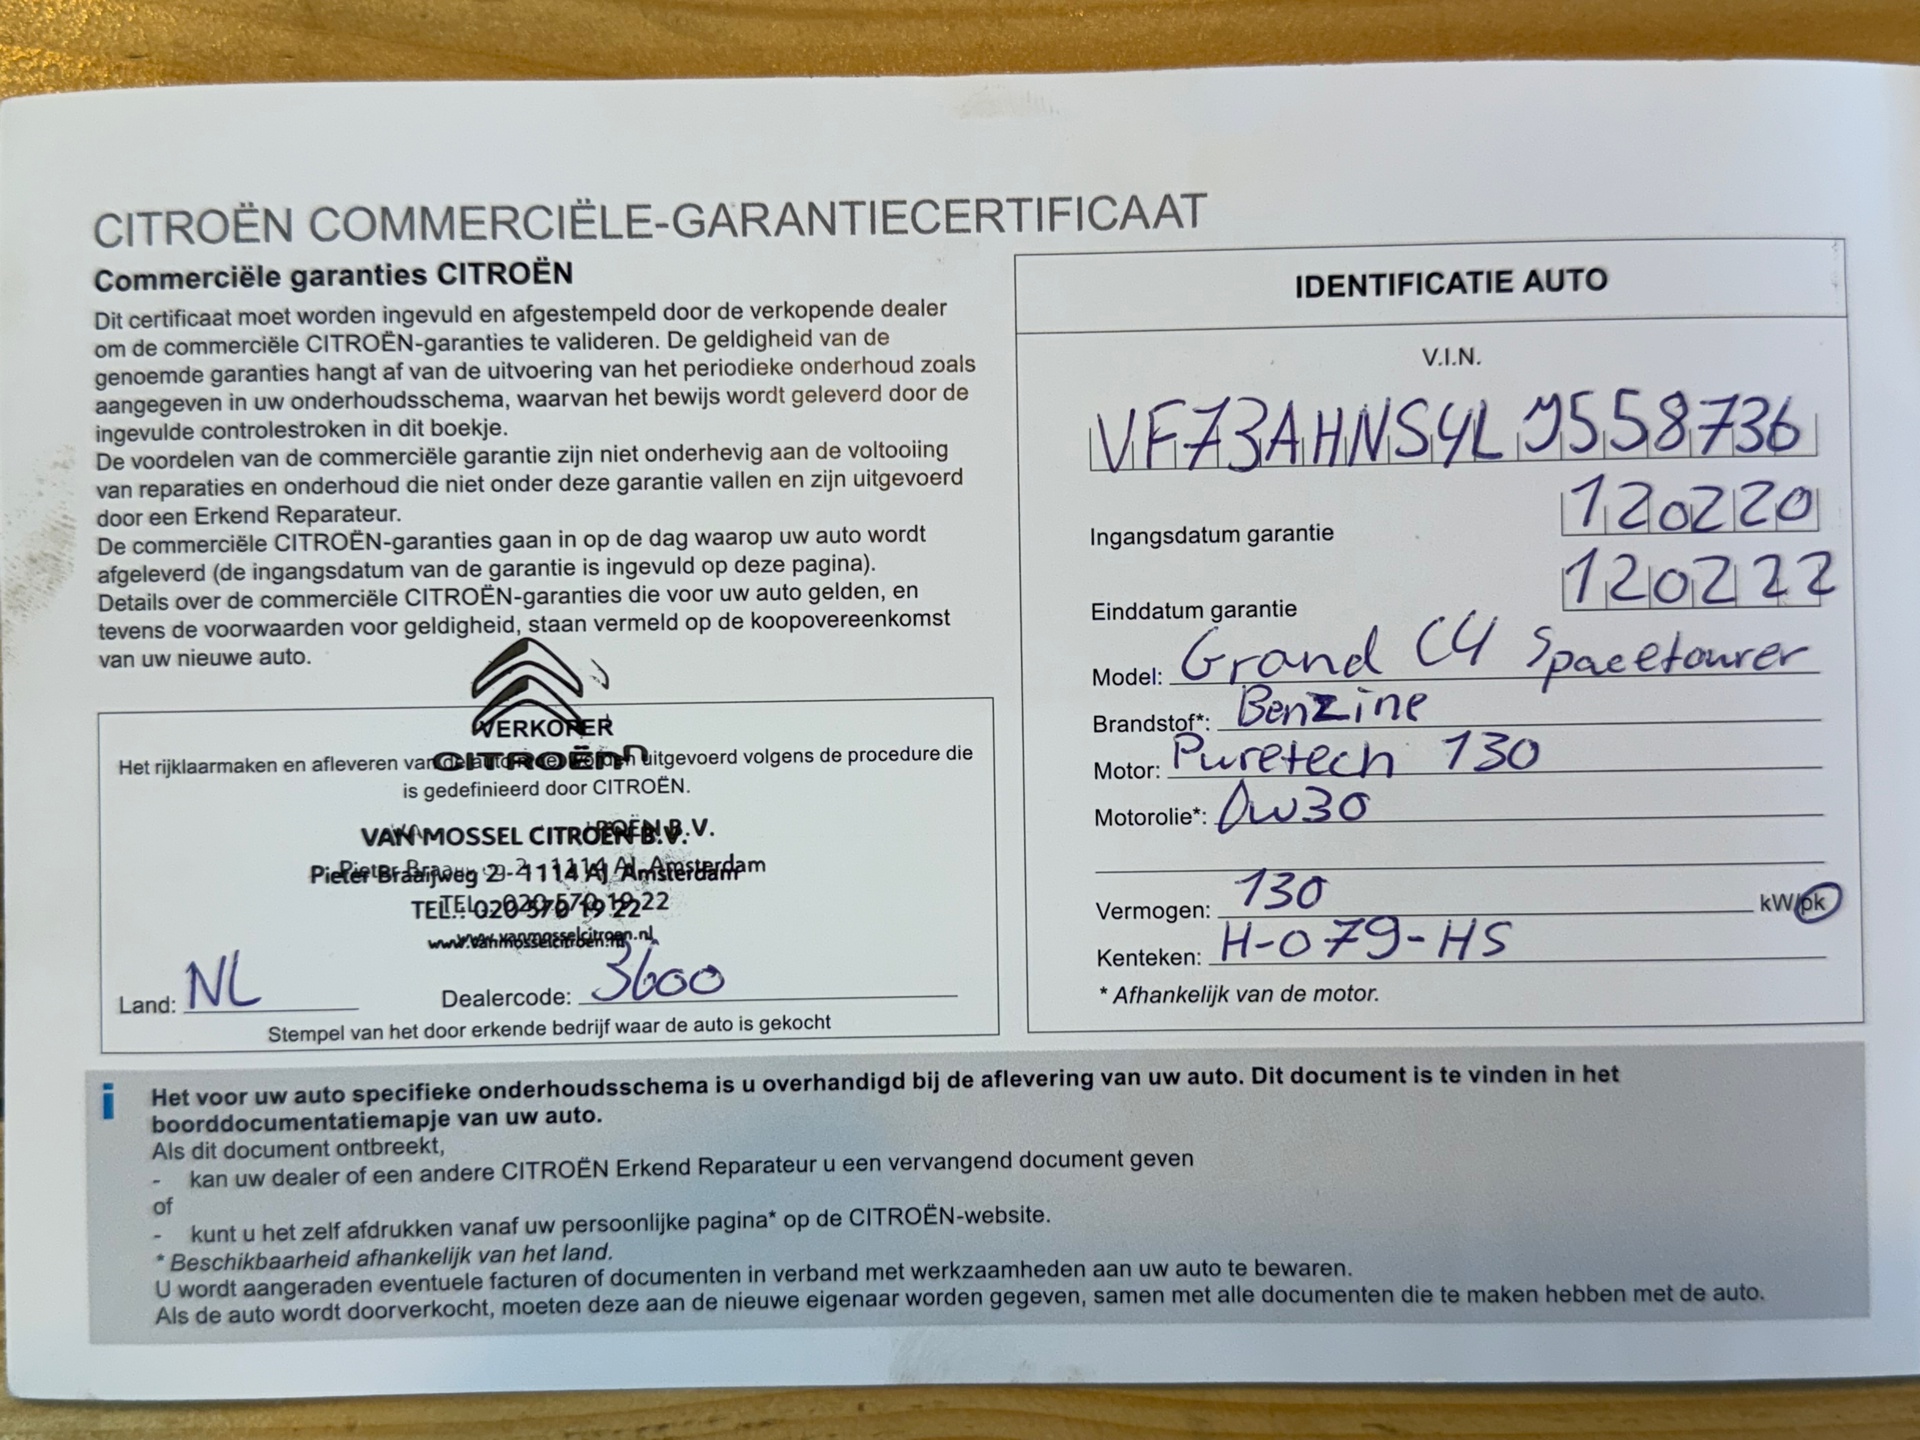 CITROËN COMMERCIËLE-GARANTIECERTIFICAAT
Commerciële garanties CITROËN
Dit certificaat moet worden ingevuld en afgestempeld door de verkopende dealer
om de commerciële CITROËN-garanties te valideren. De geldigheid van de
genoemde garanties hangt af van de uitvoering van het periodieke onderhoud zoals
aangegeven in uw onderhoudsschema, waarvan het bewijs wordt geleverd door de
ingevulde controlestroken in dit boekje.
De voordelen van de commerciële garantie zijn niet onderhevig aan de voltooiing
van reparaties en onderhoud die niet onder deze garantie vallen en zijn uitgevoerd
door een Erkend Reparateur.
De commerciële CITROËN-garanties gaan in op de dag waarop uw auto wordt
afgeleverd (de ingangsdatum van de garantie is ingevuld op deze pagina).
Details over de commerciële CITROËN-garanties die voor uw auto gelden, en
tevens de voorwaarden voor geldigheid, staan vermeld op de koopovereenkomst
van uw nieuwe auto.
VERKOPER
CITROËN
Het rijklaarmaken en afleveren van de auto uitgevoerd volgens de procedure die
is gedefinieerd door CITROËN.
VAN MOSSEL CITROËN B.V.
Pieter Braaijweg 2 - 1114 AJ Amsterdam
TEL.: 020 570 19 22
www.vanmosselcitroen.nl
Land: NL Dealercode: 3600
Stempel van het door erkende bedrijf waar de auto is gekocht
IDENTIFICATIE AUTO
V.I.N.
VF73AHNSYLJ558736
Ingangsdatum garantie 120220
Einddatum garantie 120222
Model: Grand C4 Spacetourer
Brandstof*: Benzine
Motor: Puretech 130
Motorolie*: 0W30
Vermogen: 130 kW/pk
Kenteken: H-079-HS
* Afhankelijk van de motor.
i Het voor uw auto specifieke onderhoudsschema is u overhandigd bij de aflevering van uw auto. Dit document is te vinden in het
boorddocumentatiemapje van uw auto.
Als dit document ontbreekt,
- kan uw dealer of een andere CITROËN Erkend Reparateur u een vervangend document geven
of
- kunt u het zelf afdrukken vanaf uw persoonlijke pagina* op de CITROËN-website.
* Beschikbaarheid afhankelijk van het land.
U wordt aangeraden eventuele facturen of documenten in verband met werkzaamheden aan uw auto te bewaren.
Als de auto wordt doorverkocht, moeten deze aan de nieuwe eigenaar worden gegeven, samen met alle documenten die te maken hebben met de auto.